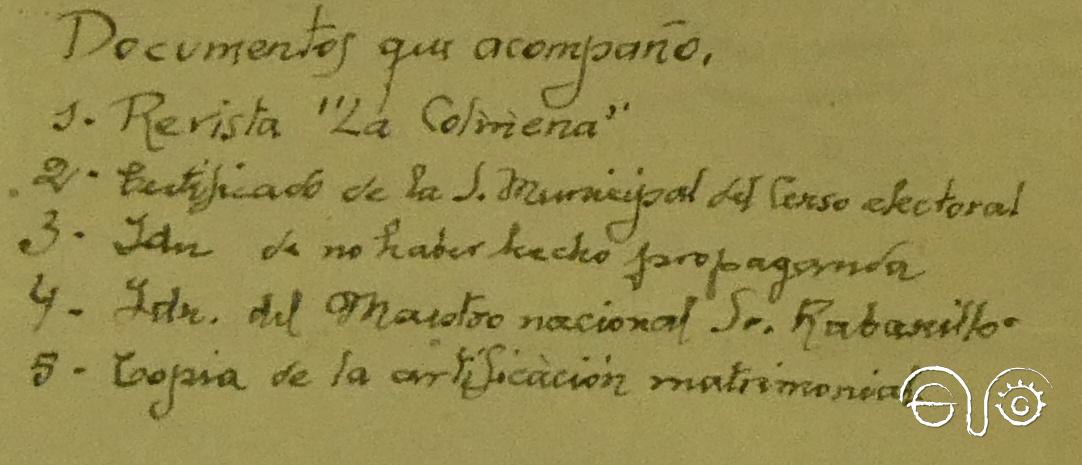 Documentos que acompaño.
1. Revista "La Colmena"
2. Certificado de la J. Municipal del Censo electoral
3. Idm de no haber hecho propaganda
4. Idm. del Maestro nacional Sr. Rabanillo
5. Copia de la certificación matrimonial